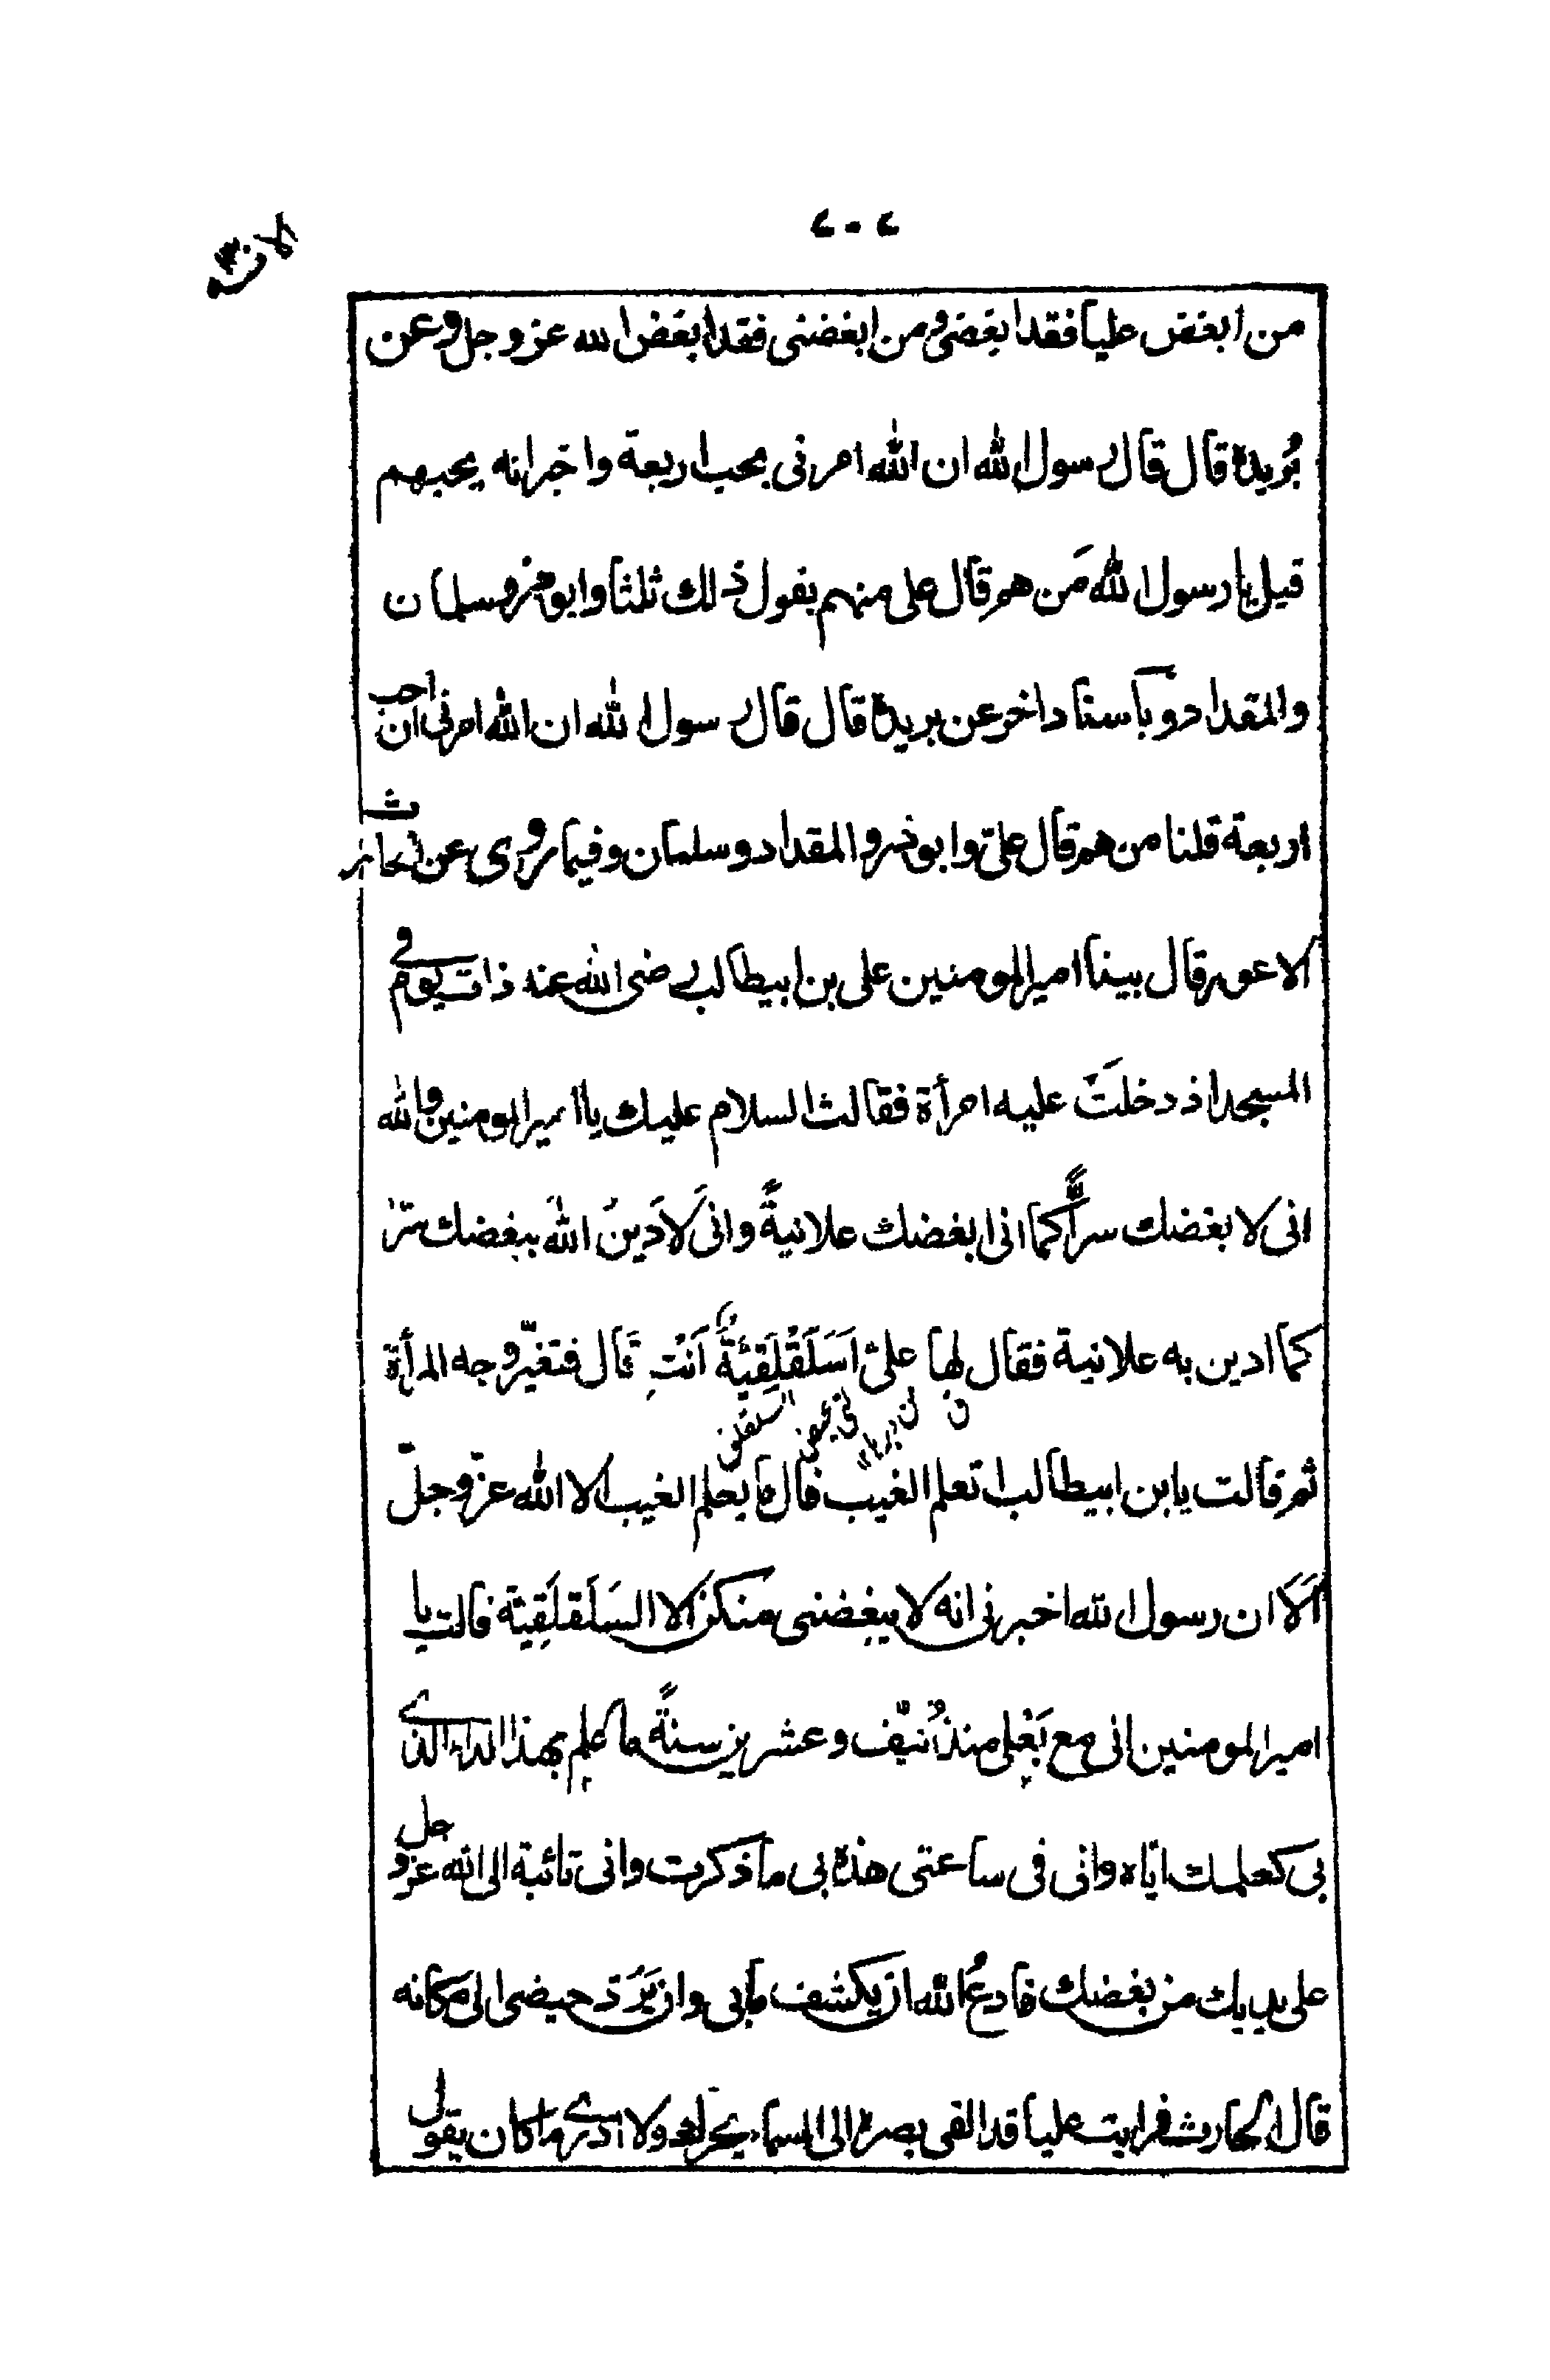 ٤٠٤
من ابغض عليا فقد ابغضنى ومن ابغضنى فقد ابغض الله عز وجل وعن
بُريدة قال قال رسول الله ان الله امرنى بحب اربعة واخبرانه يحبهم
قيل يا رسول الله مَن هم قال على منهم يقول ذلك ثلثا وابوذر وسلمان
والمقداد وبآسناد اخر عن بريدة قال قال رسول الله ان الله امرنى ان احب
اربعة قلنا من هم قال علىّ وابوذر والمقداد وسلمان وفيما روى عن الحارث
الاعور قال بينا امير المومنين على بن ابيطالب رضى الله عنه ذات يوم فى
المسجد اذ دخلَتْ عليه امرأة فقالت السلام عليك يا امير المومنين والله
انى لا بغضك سرًّا كما انى ابغضك علانيةً وانى لَادَينُ اللهَ ببغضك سرّا
كما ادين به علانية فقال لها علىّ اَسَلَقْلَقِيّةٌ اَنْتِ قال فتغيّر وجه المرأة
السلقلق
ثم قالت يا بن ابيطالب اتعلم الغيب قال ما يعلم الغيب الا الله عزّ وجلّ
اَلَا ان رسول الله اخبرنى انه لا يبغضنى منكن الا السَلَقلَقِيّة قالت يا
امير المومنين انى مع بَعْلى منذ نيّف وعشرين سنةً ما علم بهذا الداء الذى
بى كعلمك ايّاه وانى فى ساعتى هذه بى ما ذكرت وانى تائبة الى الله عز وجل
على يديك من بغضك فادعُ الله ان يكشف ما بى وان يَرُدّ حيضى الى مكانه
قال الحارث فرايت عليا قد القى بصره الى السماء يحرك ولا ادرى ما كان يقول